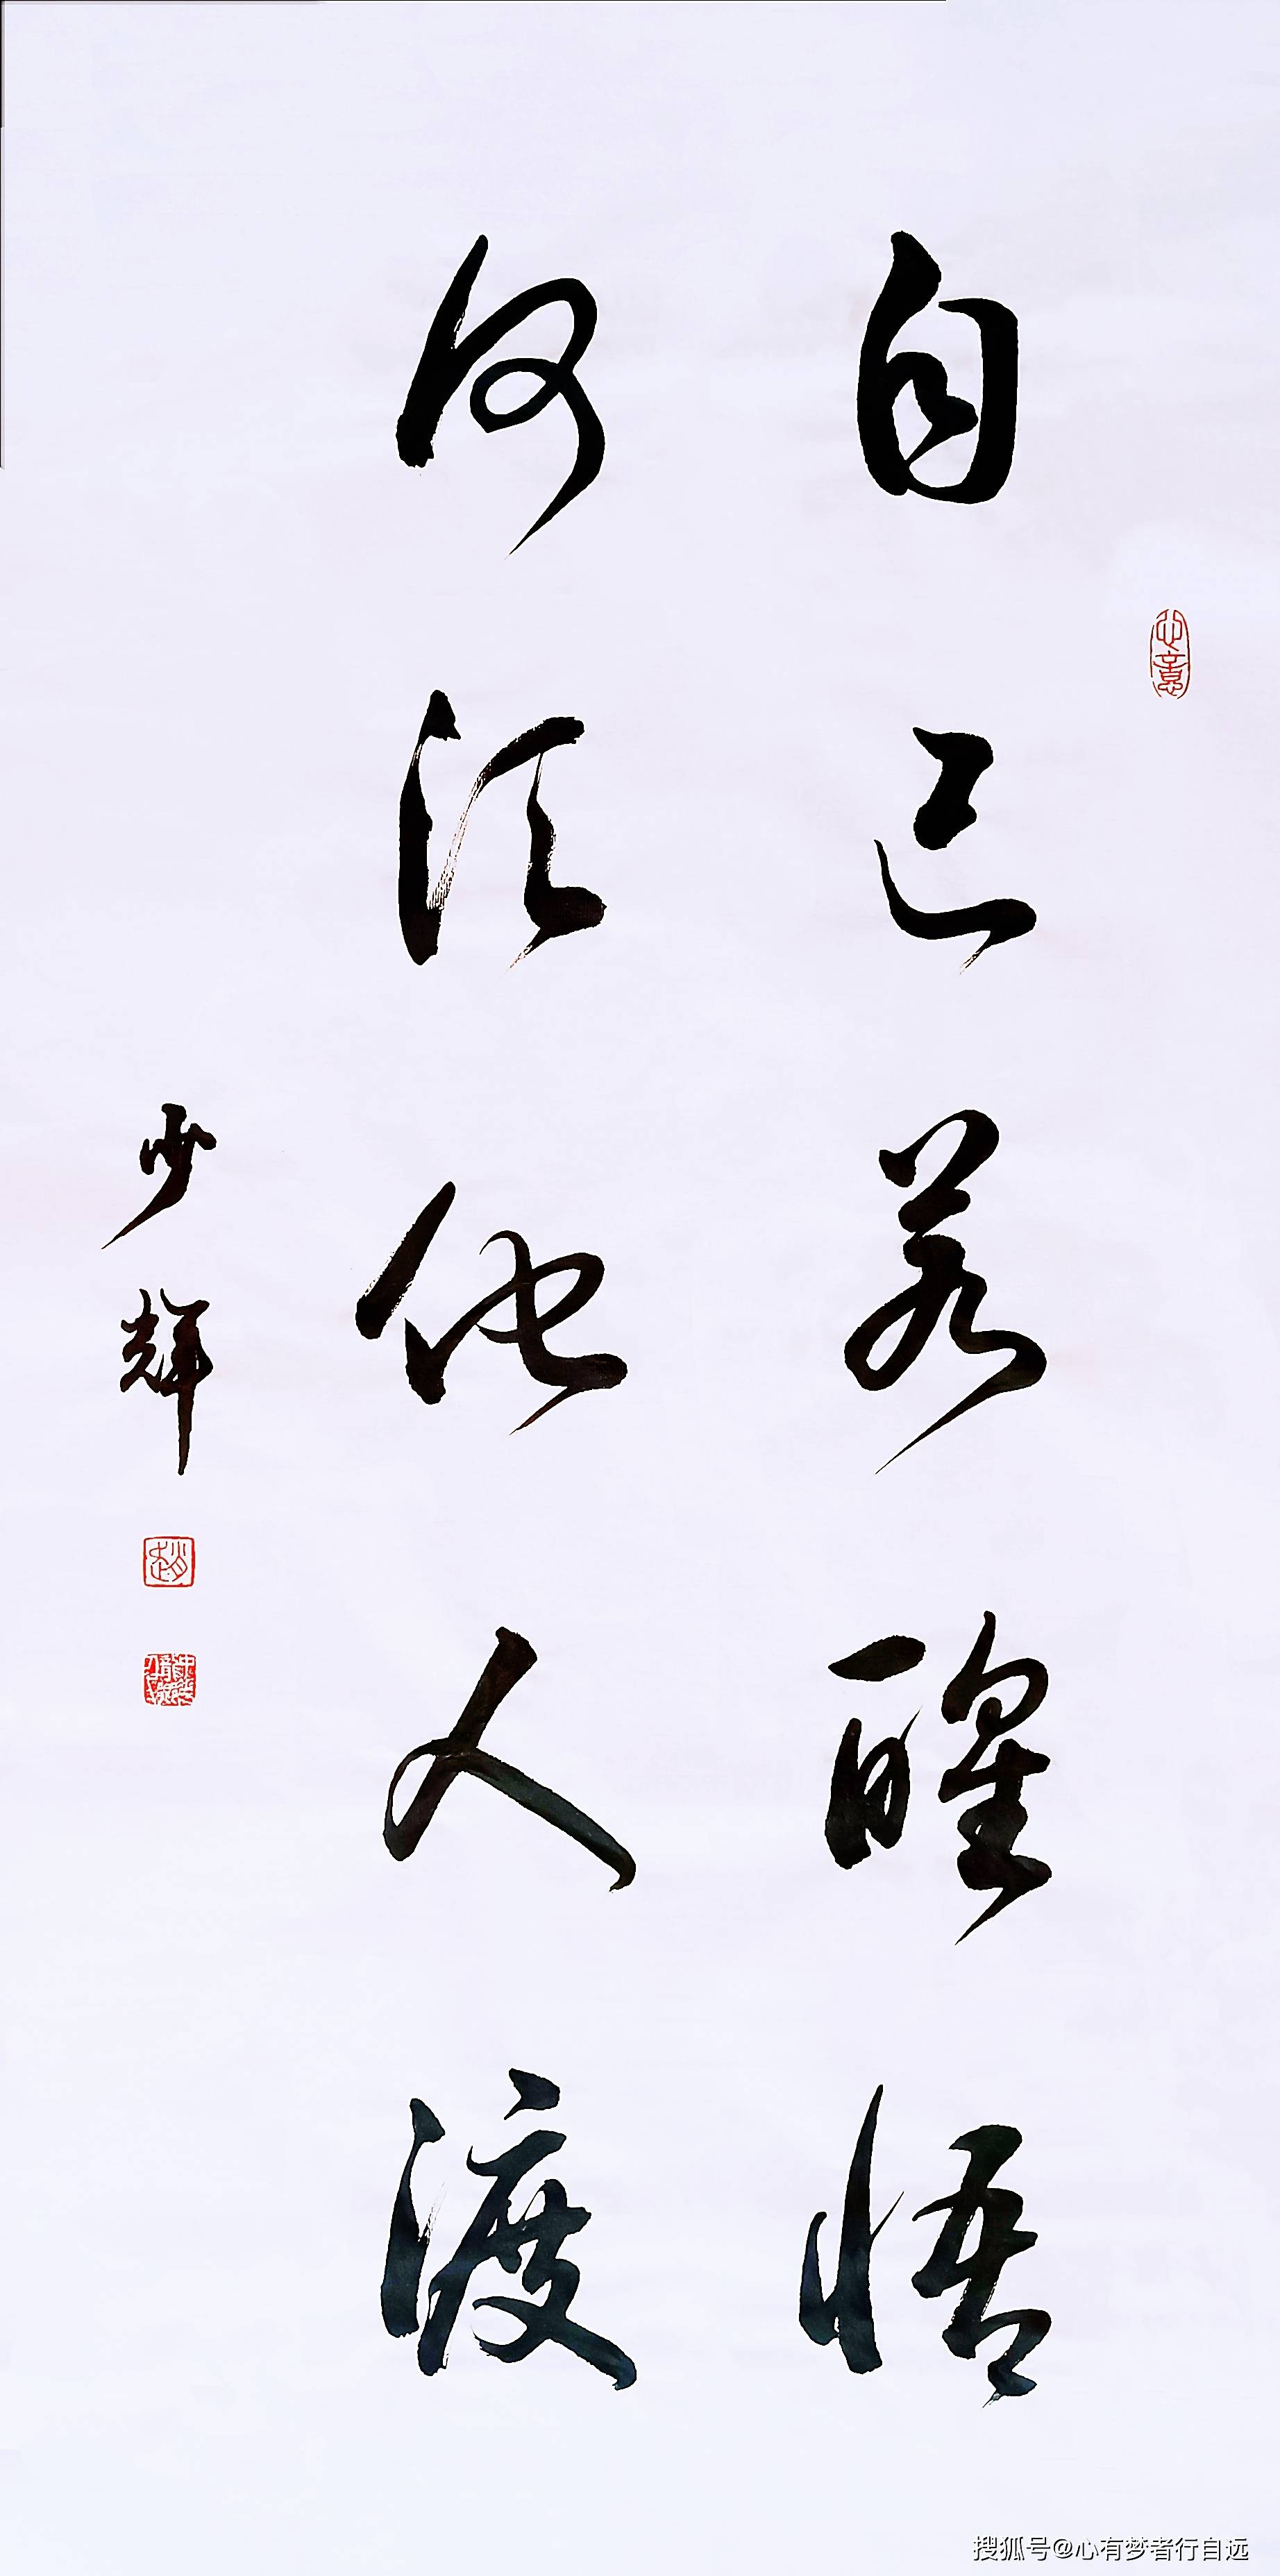 自己若醒悟
何須他人渡
少輝
心意
趙
搜狐号@心有梦者行自远